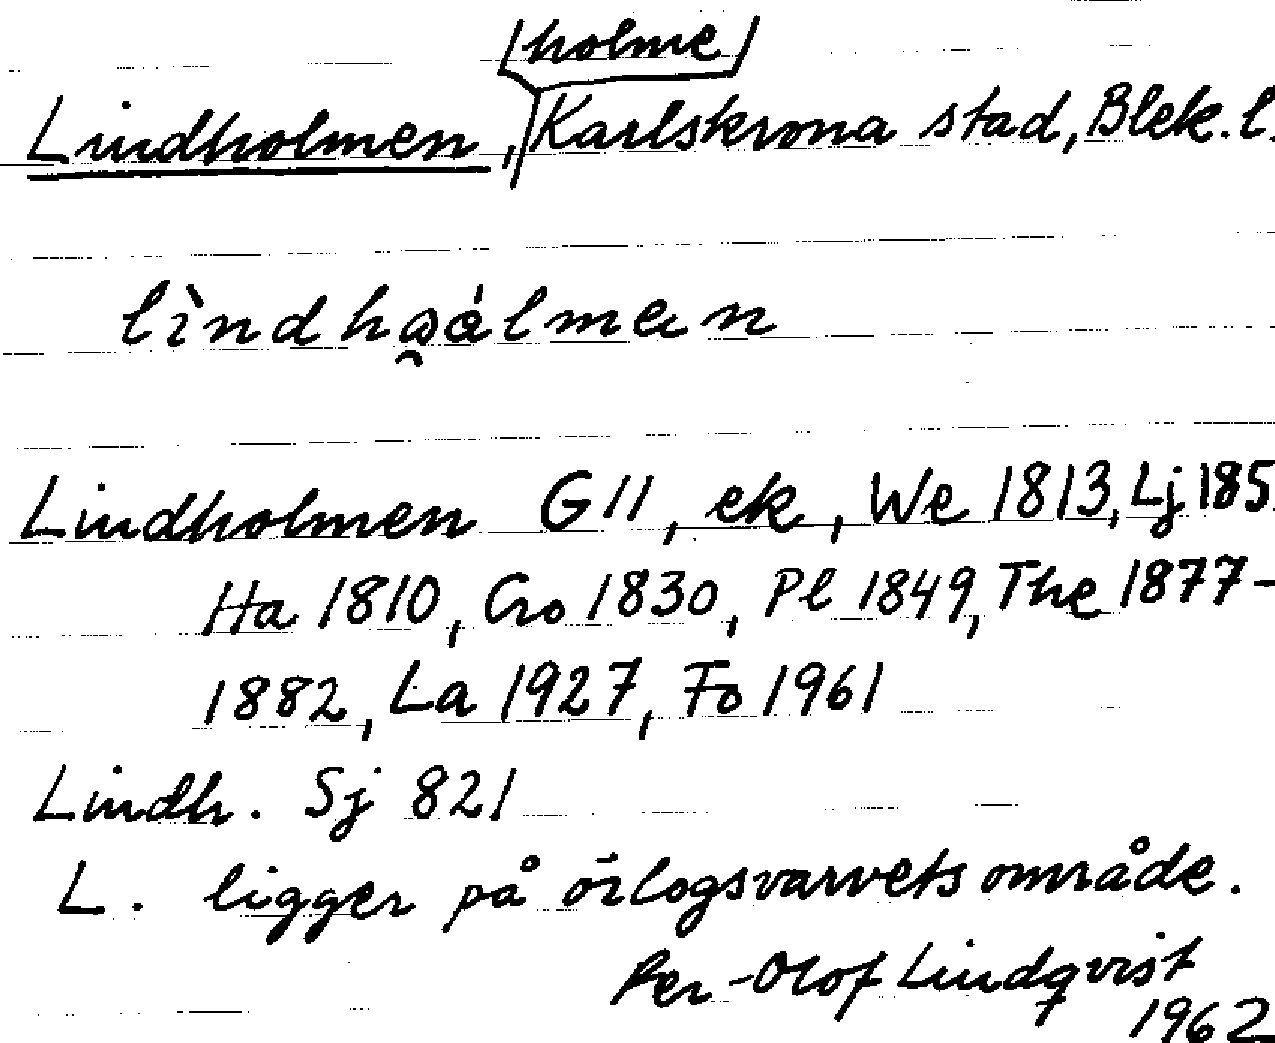 holme
Lindholmen, Karlskrona stad, Blek. l.
Lindholmen G 11, ek, We 1813, Lj 185
Ha 1810, Cro 1830, Pl 1849, The 1877-
1882, La 1927, Fo 1961
Lindh. Sj 821
L. ligger på örlogsvarvets område.
Per-Olof Lindqvist
1962